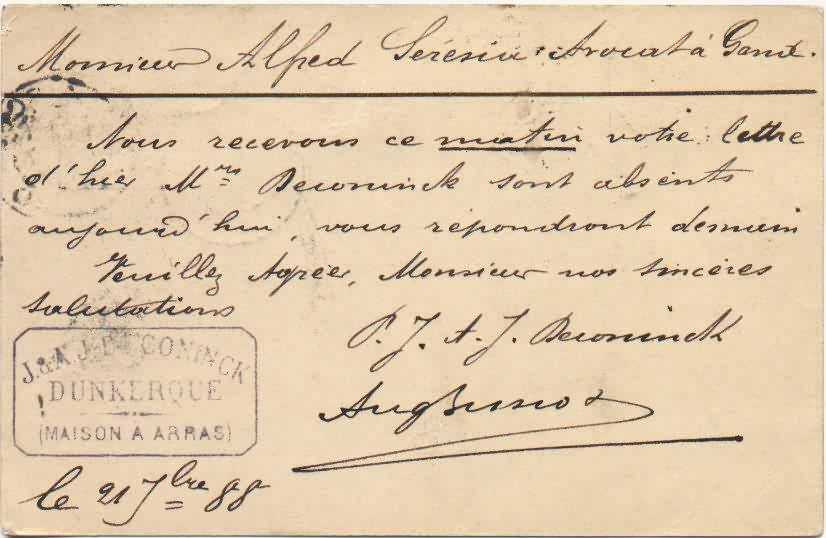 Monsieur Alfred Avocat à Gand.
Nous recevons ce matin votre lettre
d'hier Mrs Deconinck sont absents
aujourd'hui, vous répondront demain
Veuillez Agréer, Monsieur nos sincères
salutations
P. J. A. J. Deconinck
J. & A. J. De CONINCK
DUNKERQUE
(MAISON A ARRAS)
le 21 7bre 88